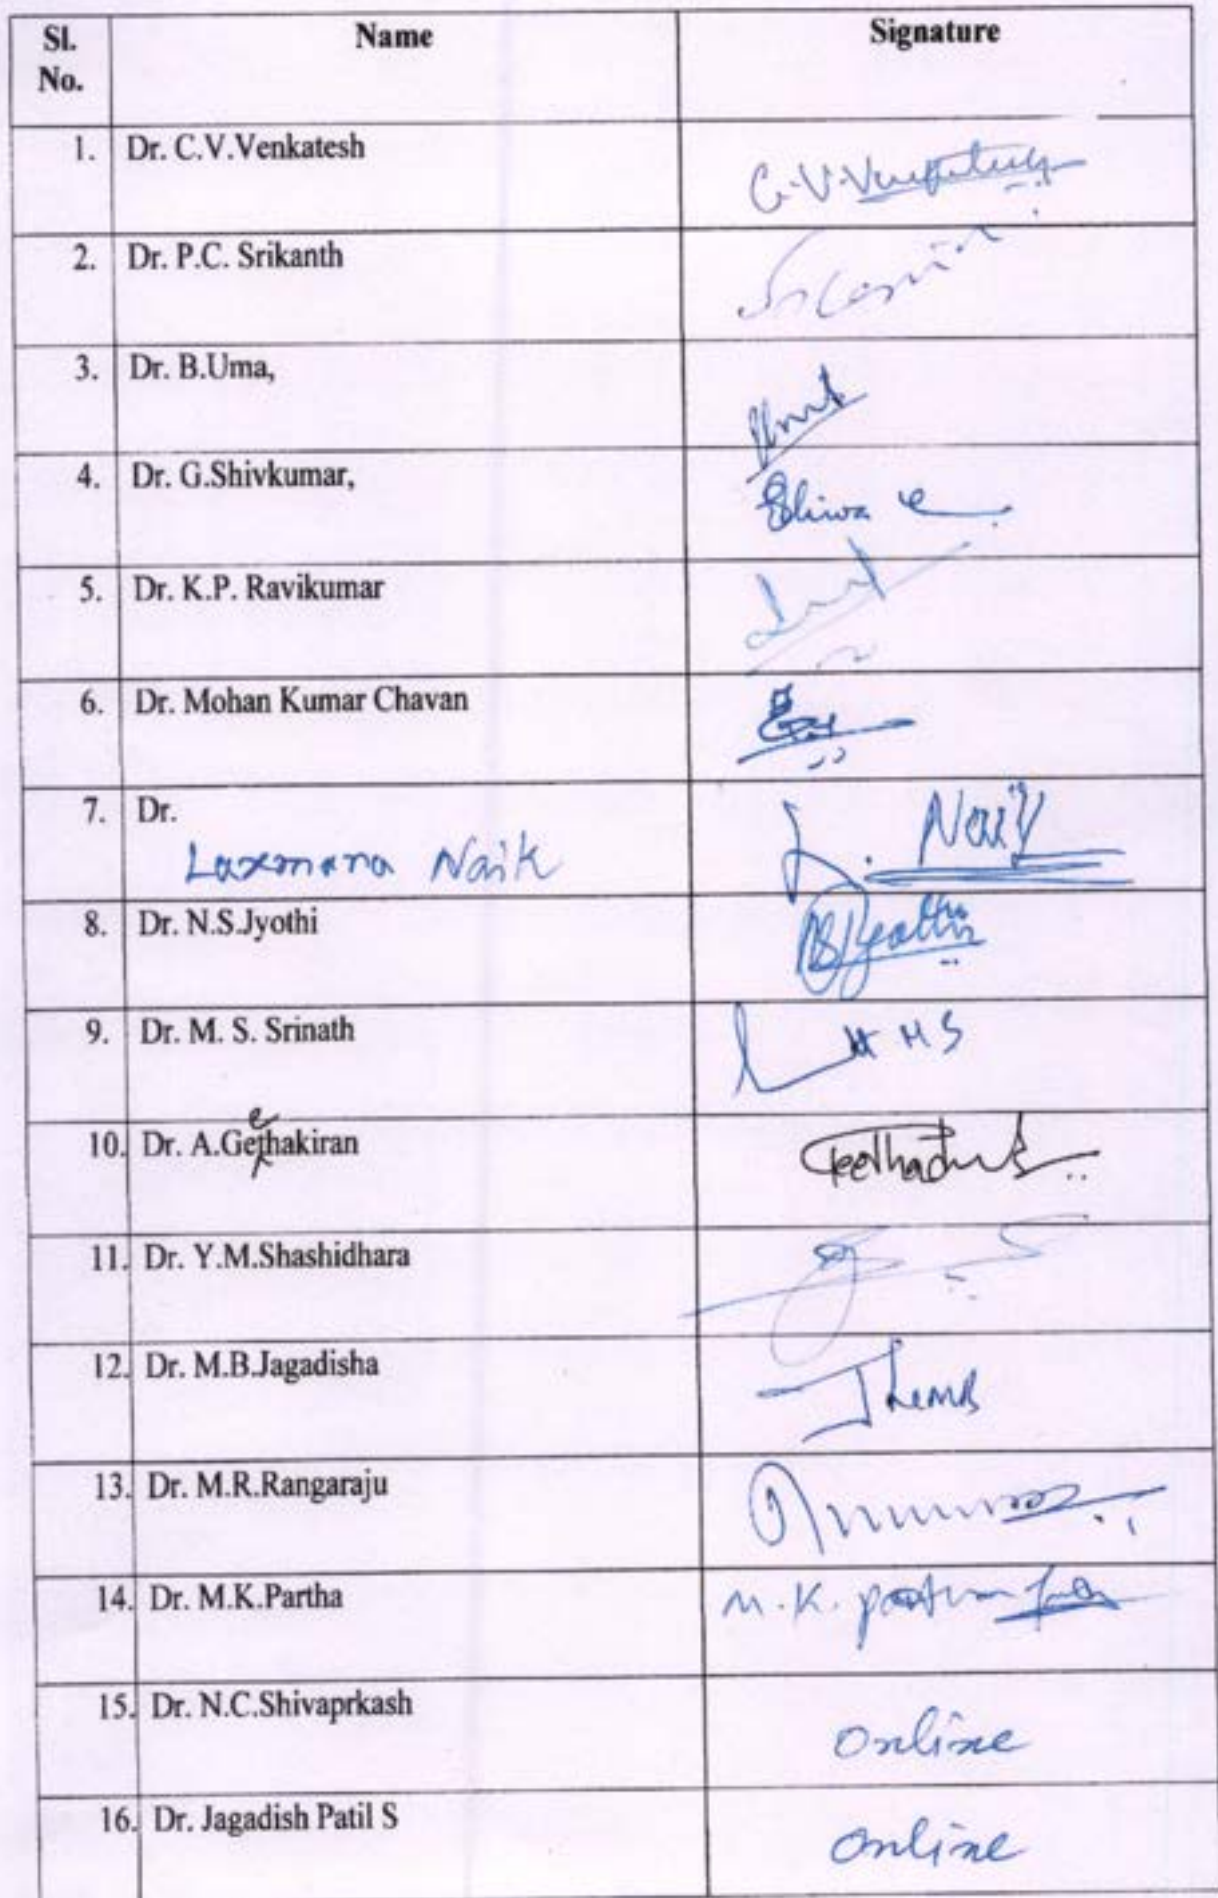 Sl. No. Name Signature
1. Dr. C.V.Venkatesh C.V.Venkatesh
2. Dr. P.C. Srikanth
3. Dr. B.Uma,
4. Dr. G.Shivkumar,
5. Dr. K.P. Ravikumar
6. Dr. Mohan Kumar Chavan
7. Dr. L. Naik
Laxmana Naik
8. Dr. N.S.Jyothi NSJyothi
9. Dr. M. S. Srinath
10. Dr. A.Geethakiran
11. Dr. Y.M.Shashidhara
12. Dr. M.B.Jagadisha
13. Dr. M.R.Rangaraju
14. Dr. M.K.Partha M.K.
15. Dr. N.C.Shivaprkash Online
16. Dr. Jagadish Patil S Online